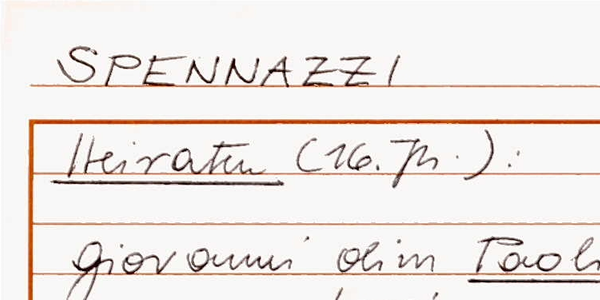 SPENNAZZI
Heiraten (16. Jh.):
giovanni olim Paol